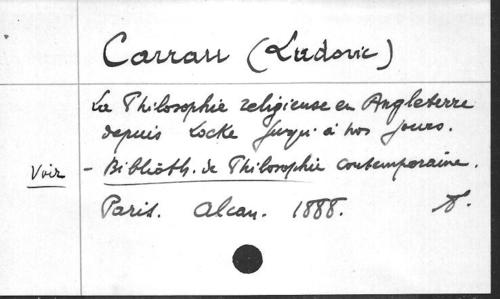 Carrau (Ludovic)
La Philosophie religieuse en Angleterre
depuis Locke jusqu'à nos jours.
Voir - Biblioth. de Philosophie contemporaine.
Paris. Alcan. 1888.